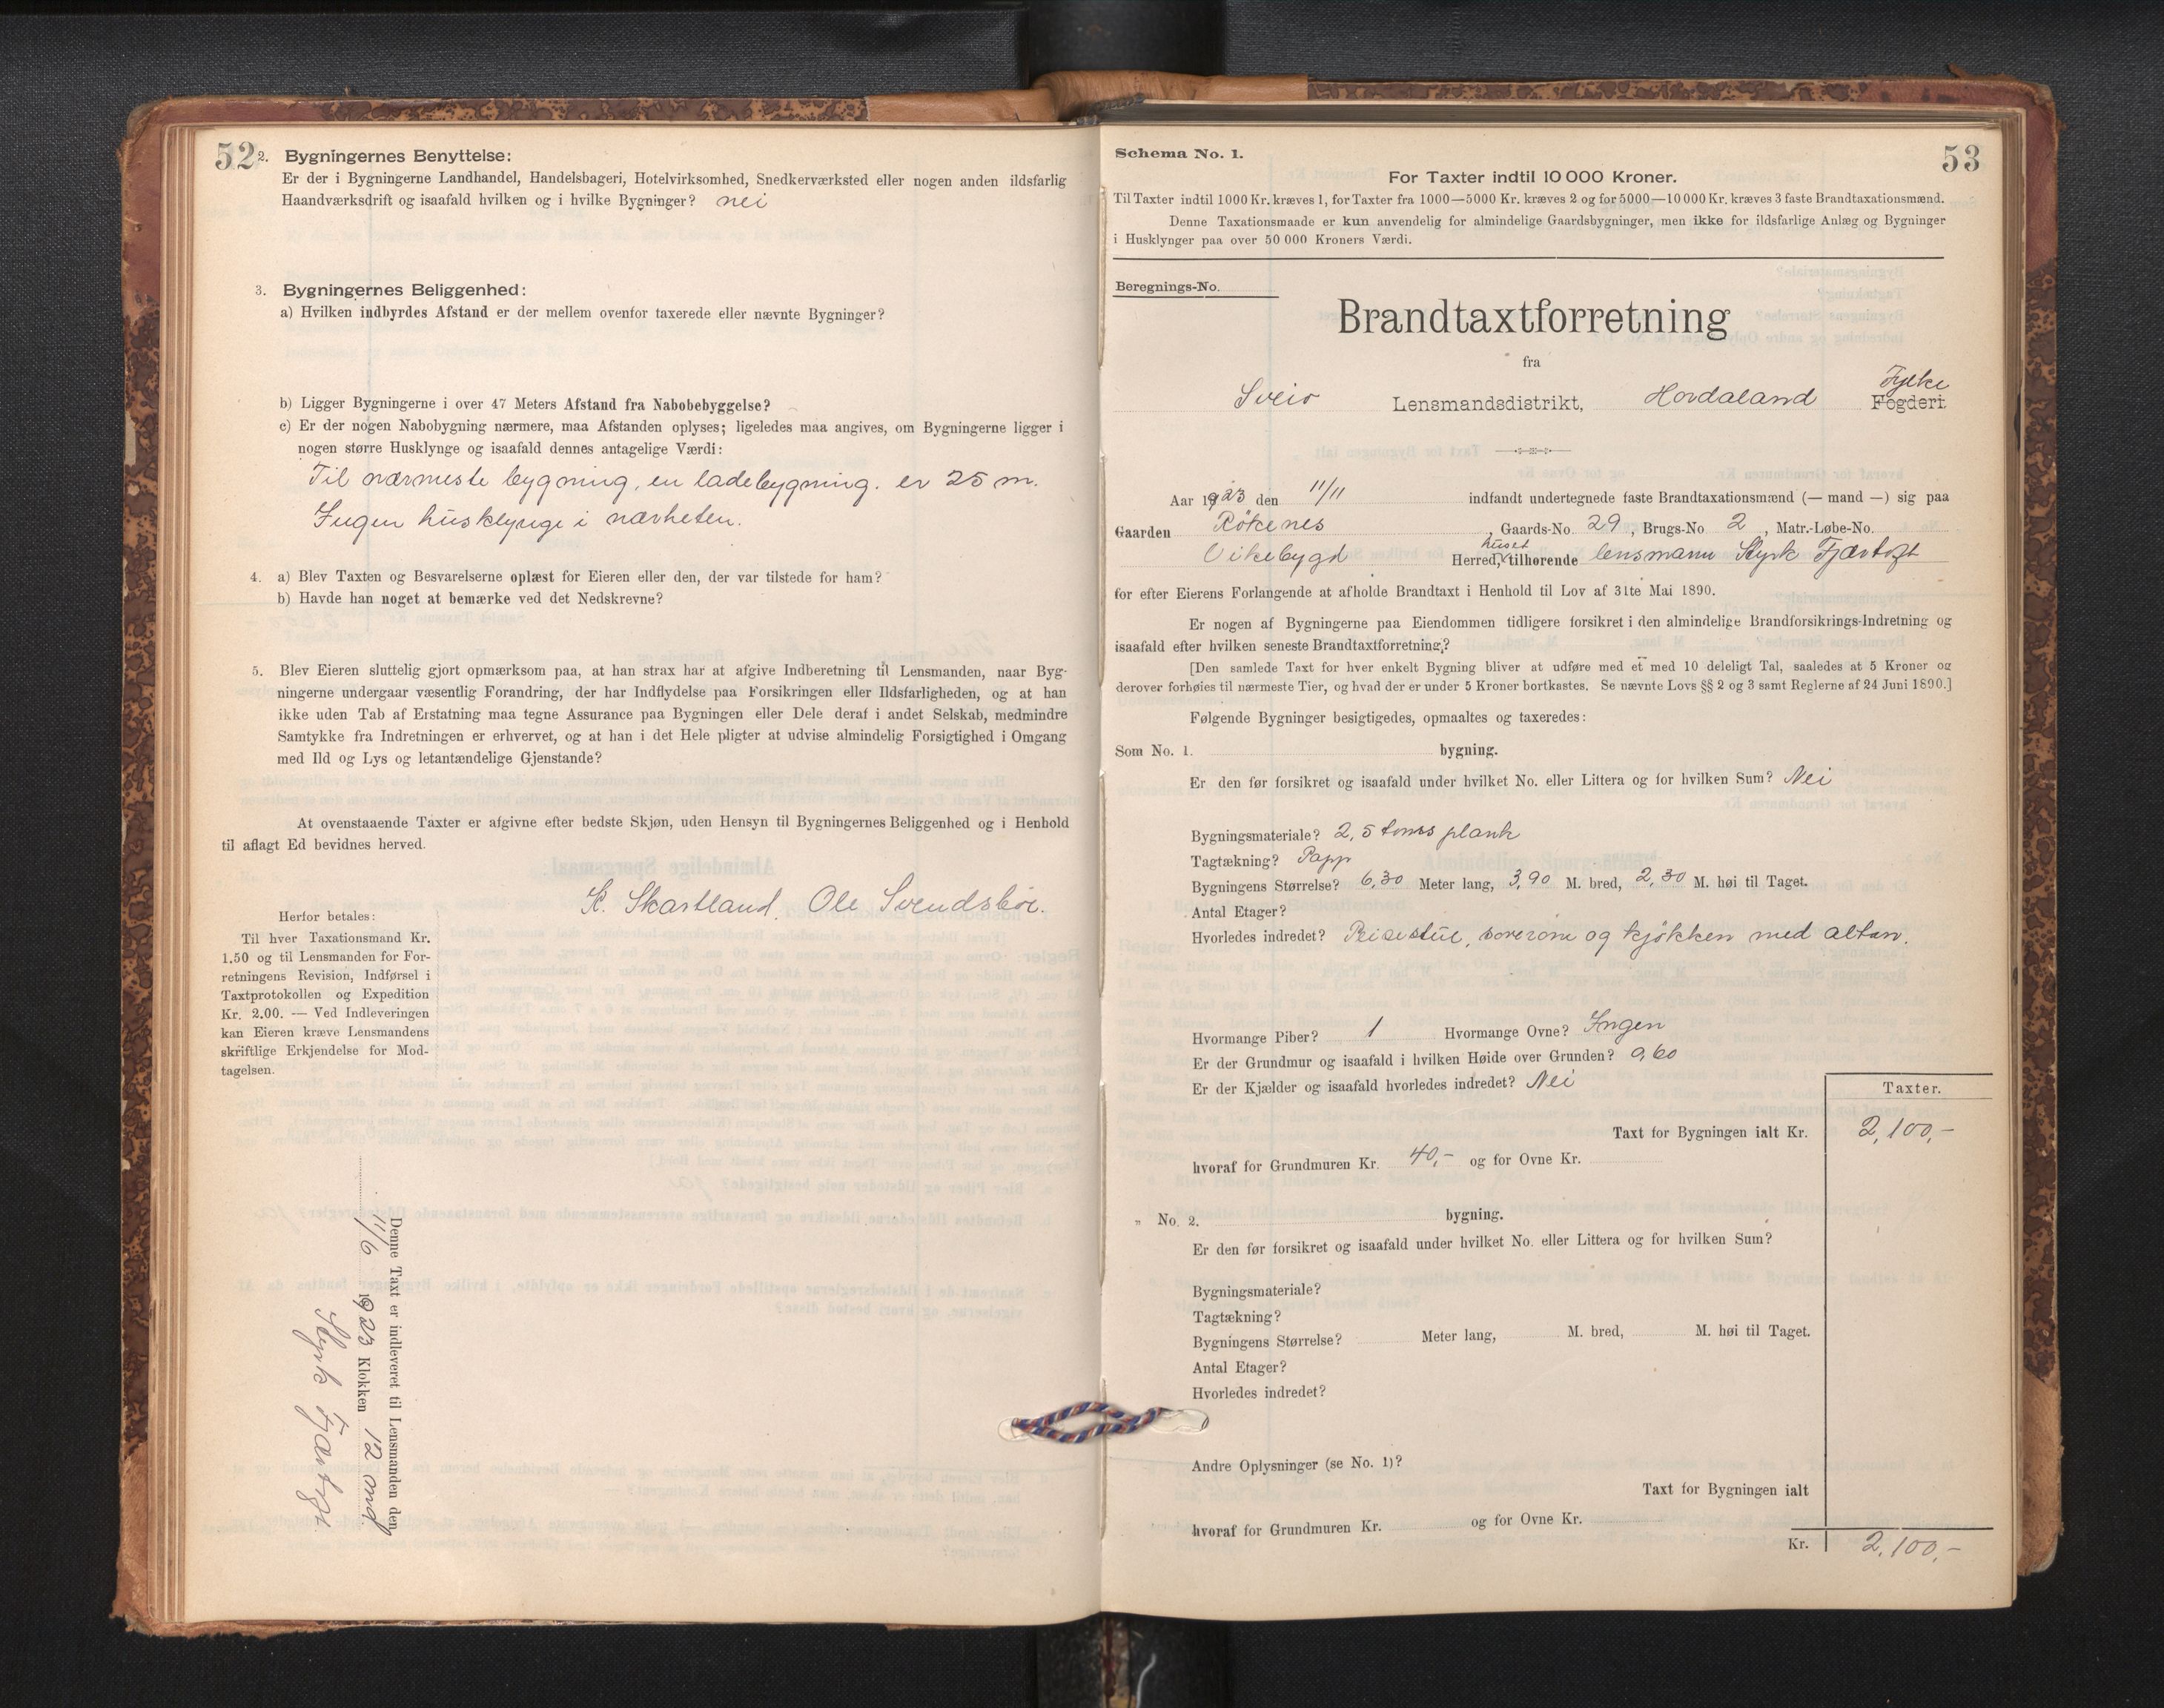 52
2. Bygningernes Benyttelse:
Er der i Bygningerne Landhandel, Handelsbageri, Hotelvirksomhed, Snedkerværksted eller nogen anden ildsfarlig
Haandværksdrift og isaafald hvilken og i hvilke Bygninger? nei
3. Bygningernes Beliggenhed:
a) Hvilken indbyrdes Afstand er der mellem ovenfor taxerede eller nævnte Bygninger?
b) Ligger Bygningerne i over 47 Meters Afstand fra Nabobebyggelse?
c) Er der nogen Nabobygning nærmere, maa Afstanden oplyses; ligeledes maa angives, om Bygningerne ligger i
nogen større Husklynge og isaafald dennes antagelige Værdi:
Til nærmeste bygning, en ladebygning. er 25 m.
Ingen husklynge i nærheten.
4. a) Blev Taxten og Besvarelserne oplæst for Eieren eller den, der var tilstede for ham?
b) Havde han noget at bemærke ved det Nedskrevne?
5. Blev Eieren sluttelig gjort opmærksom paa, at han strax har at afgive Indberetning til Lensmanden, naar Byg-
ningerne undergaar væsentlig Forandring, der har Indflydelse paa Forsikringen eller Ildsfarligheden, og at han
ikke uden Tab af Erstatning maa tegne Assurance paa Bygningen eller Dele deraf i andet Selskab, medmindre
Samtykke fra Indretningen er erhvervet, og at han i det Hele pligter at udvise almindelig Forsigtighed i Omgang
med Ild og Lys og letantændelige Gjenstande?
At ovenstaaende Taxter er afgivne efter bedste Skjøn, uden Hensyn til Bygningernes Beliggenhed og i Henhold
til aflagt Ed bevidnes herved.
K. Skartland. Ole Svendsbøe.
Herfor betales:
Til hver Taxationsmand Kr.
1.50 og til Lensmanden for For-
retningens Revision, Indførsel i
Taxtprotokollen og Expedition
Kr. 2.00. — Ved Indleveringen
kan Eieren kræve Lensmandens
skriftlige Erkjendelse for Mod-
tagelsen.
Denne Taxt er indleveret til Lensmanden den
11/6 1923 Klokken 12 md
Styrk Fjærtoft
53
Schema No. 1.
For Taxter indtil 10 000 Kroner.
Til Taxter indtil 1000 Kr. kræves 1, for Taxter fra 1000—5000 Kr. kræves 2 og for 5000—10000 Kr. kræves 3 faste Brandtaxationsmænd.
Denne Taxationsmaade er kun anvendelig for almindelige Gaardsbygninger, men ikke for ildsfarlige Anlæg og Bygninger
i Husklynger paa over 50 000 Kroners Værdi.
Beregnings-No.
Brandtaxtforretning
fra
Sveio Lensmandsdistrikt, Hordaland Fylke Fogderi.
Aar 1923 den 11/11 indfandt undertegnede faste Brandtaxationsmænd (— mand —) sig paa
Gaarden Røkenes, Gaards-No 29, Brugs-No 2, Matr.-Løbe-No.
Vikebygd Herred, huset tilhørende lensmann Styrk Fjærtoft
for efter Eierens Forlangende at afholde Brandtaxt i Henhold til Lov af 31te Mai 1890.
Er nogen af Bygningerne paa Eiendommen tidligere forsikret i den almindelige Brandforsikrings-Indretning og
isaafald efter hvilken seneste Brandtaxtforretning?
[Den samlede Taxt for hver enkelt Bygning bliver at udføre med et med 10 deleligt Tal, saaledes at 5 Kroner og
derover forhøies til nærmeste Tier, og hvad der er under 5 Kroner bortkastes. Se nævnte Lovs §§ 2 og 3 samt Reglerne af 24 Juni 1890.]
Følgende Bygninger besigtigedes, opmaaltes og taxeredes:
Som No. 1. bygning.
Er den før forsikret og isaafald under hvilket No. eller Littera og for hvilken Sum? Nei
Bygningsmateriale? 2,5 toms plank
Tagtækning? Papp
Bygningens Størrelse? 6,30 Meter lang, 3,90 M. bred, 2,30 M. høi til Taget.
Antal Etager?
Hvorledes indredet? Peisestue, soverom og kjøkken med altan.
Hvormange Piber? 1 Hvormange Ovne? Ingen
Er der Grundmur og isaafald i hvilken Høide over Grunden? 0,60
Er der Kjælder og isaafald hvorledes indredet? Nei
Taxter.
Taxt for Bygningen ialt Kr. 2,100,-
hvoraf for Grundmuren Kr. 40,- og for Ovne Kr.
„ No. 2. bygning.
Er den før forsikret og isaafald under hvilket No. eller Littera og for hvilken Sum?
Bygningsmateriale?
Tagtækning?
Bygningens Størrelse? Meter lang, M. bred, M. høi til Taget.
Antal Etager?
Hvorledes indredet?
Andre Oplysninger (se No. 1)?
Taxt for Bygningen ialt
hvoraf for Grundmuren Kr. og for Ovne Kr.
Kr. 2,100,-